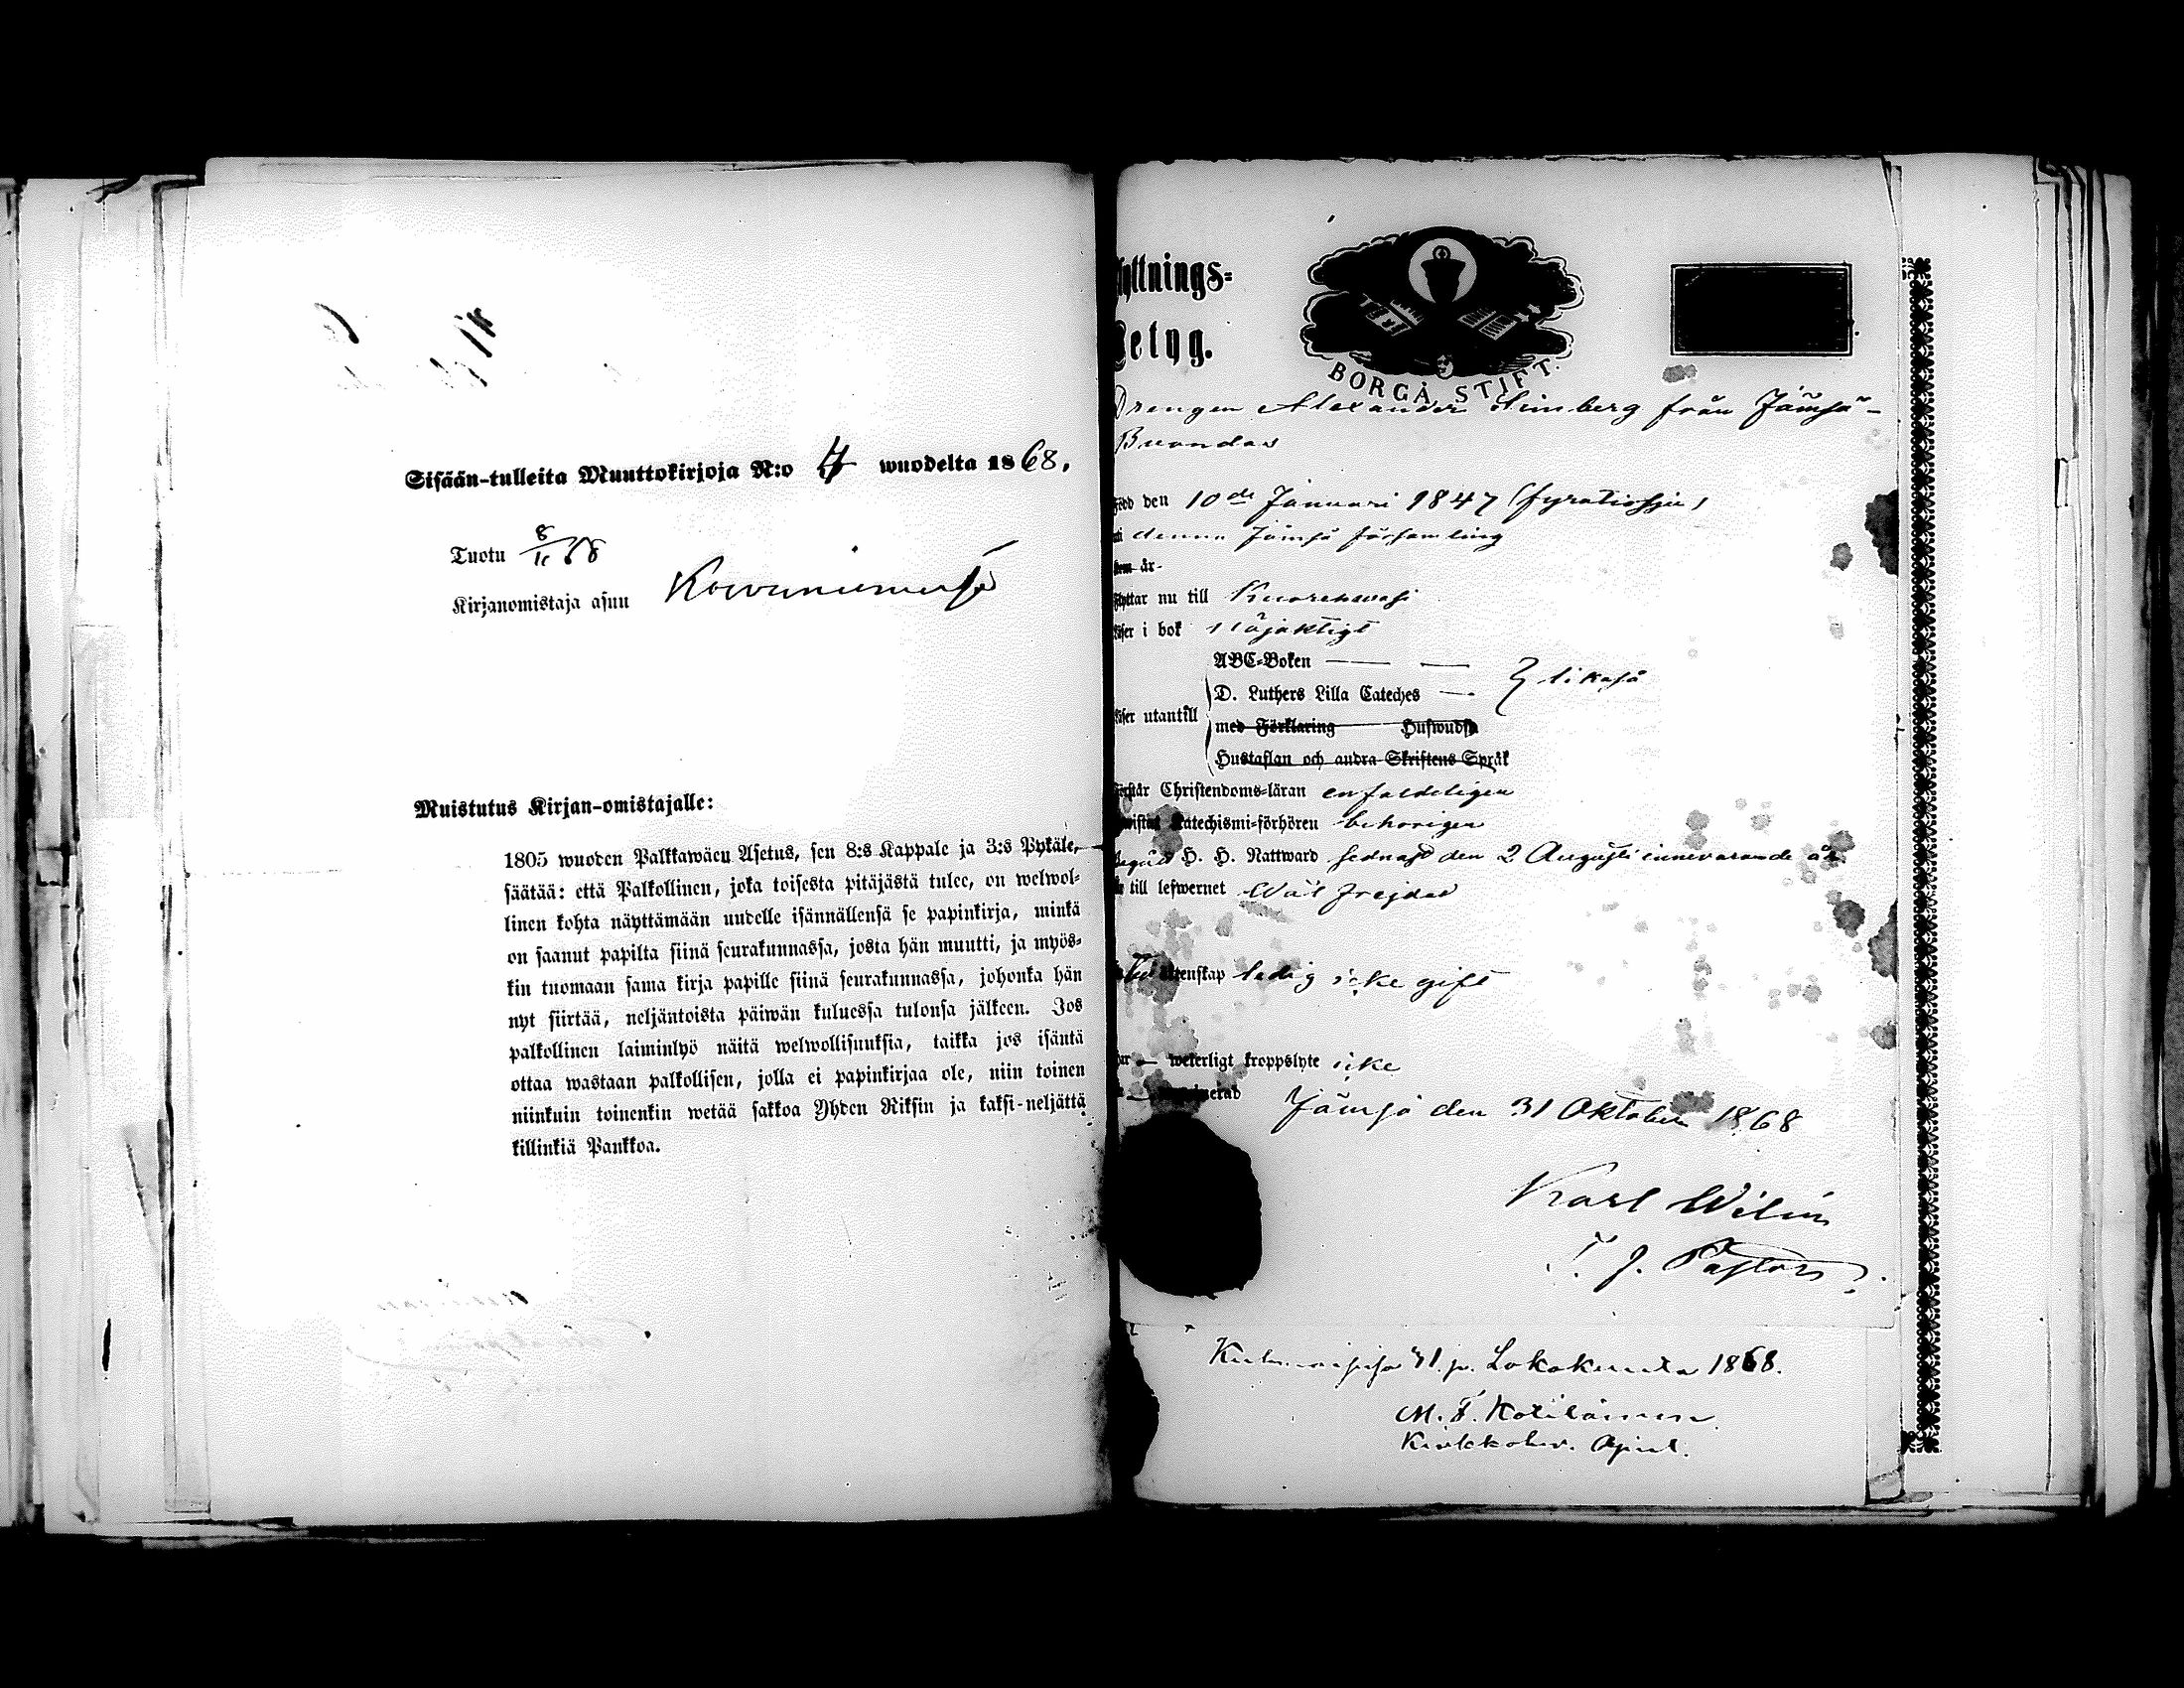 Sisään-tulleita Muuttokirjoja N:o 4 wuodelta 1868.
Tuotu 8/11 68
Kirjanomistaja asuu
Muistutus Kirjan-omistajalle:
1805 wuoden Palkkawäen Asetus, sen 8:s Kappale ja 3:s Pykäle,
säätää: että Palkollinen, joka toisesta pitäjästä tulee, on welwol-
linen kohta näyttämään uudelle isännällensä se papinkirja, minkä
on saanut papilta siinä seurakunnassa, josta hän muutti, ja myös-
kin tuomaan sama kirja papille siinä seurakunnassa, johonka hän
nyt siirtää, neljäntoista päiwän kuluessa tulonsa jälkeen. Jos
palkollinen laiminlyö näitä welwollisuuksia, taikka jos isäntä
ottaa wastaan palkollisen, jolla ei papinkirjaa ole, niin toinen
niinkuin toinenkin wetää sakkoa Yhden Riksin ja kaksi-neljättä
killinkiä Pankkoa.
yttnings-
etyg.
BORGÅ STIFT.
Drengen Alexander Simberg från Jämsä-
Född den 10de Januari 1847 (fyratiosju)
i denna Jämsä församling
som är
flyttar nu till Kuorehwesi
läser i bok nöjaktigt
ABC-Boken
D. Luthers Lilla Cateches likaså
läser utantill
med Förklaring Huswuds
Hustaflan och andra Skriftens Språk
förstår Christendoms-läran enfaldeligen
bewistat Catechismi-förhören behörigen
begått H. H. Nattward sednast den 2 Augusti innevarande år
till lefwernet Wäl frejdad
till ägtenskap ledig icke gift
har weterligt kroppslyte icke
Jämsä den 31 Oktober 1868
Karl Wilén
T. J. Pastor.
31.p. Lokakuuta 1868.
M. F. Kotilainen